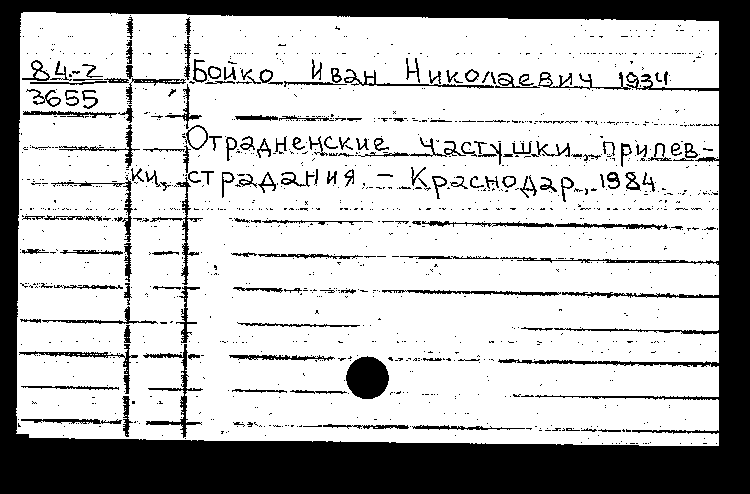 84-2 Бойко, Иван Николаевич 1934
3655
Отрадненские частушки, припев-
ки, страдания. - Краснодар, 1984.